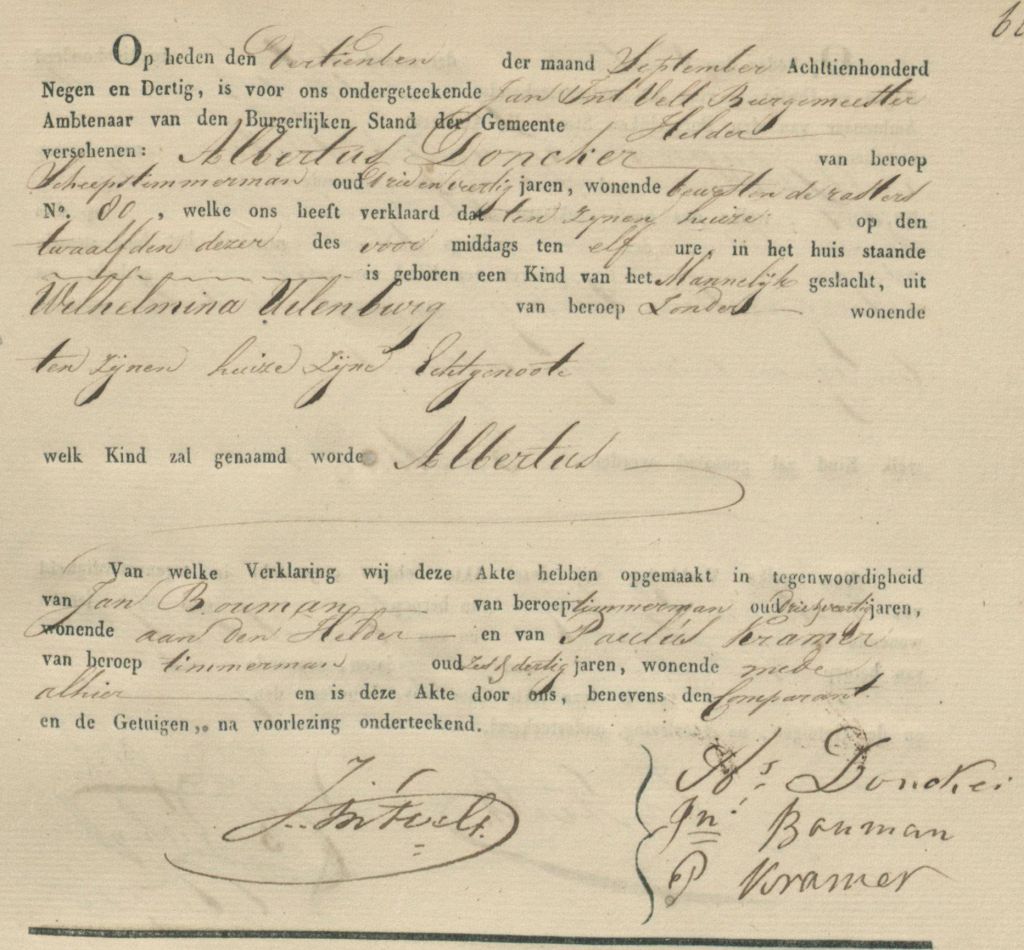 Op heden den Dertienden der maand September Achttienhonderd
Negen en Dertig, is voor ons ondergeteekende Jan In't Velt Burgemeester
Ambtenaar van den Burgerlijken Stand der Gemeente Helder
verschenen: Albertus Doncker van beroep
Scheepstimmerman oud drie en veertig jaren, wonende bewesten de rasters
No. 80, welke ons heeft verklaard dat ten zijnen huize op den
twaalfden dezer des voor middags ten elf ure, in het huis staande
is geboren een Kind van het Mannelijk geslacht, uit
Wilhelmina Uilenburg van beroep Zonder wonende
ten zijnen huize zijne Echtgenoote
welk Kind zal genaamd worde Albertus
Van welke Verklaring wij deze Akte hebben opgemaakt in tegenwoordigheid
van Jan Bouman van beroep timmerman oud Drie & veertig jaren,
wonende aan den Helder en van Paulus Kramer
van beroep timmerman oud Zes & dertig jaren, wonende mede
alhier en is deze Akte door ons, benevens den Comparant
en de Getuigen, na voorlezing onderteekend.
J. in't Velt
As Doncker
Jn Bouman
P Kramer